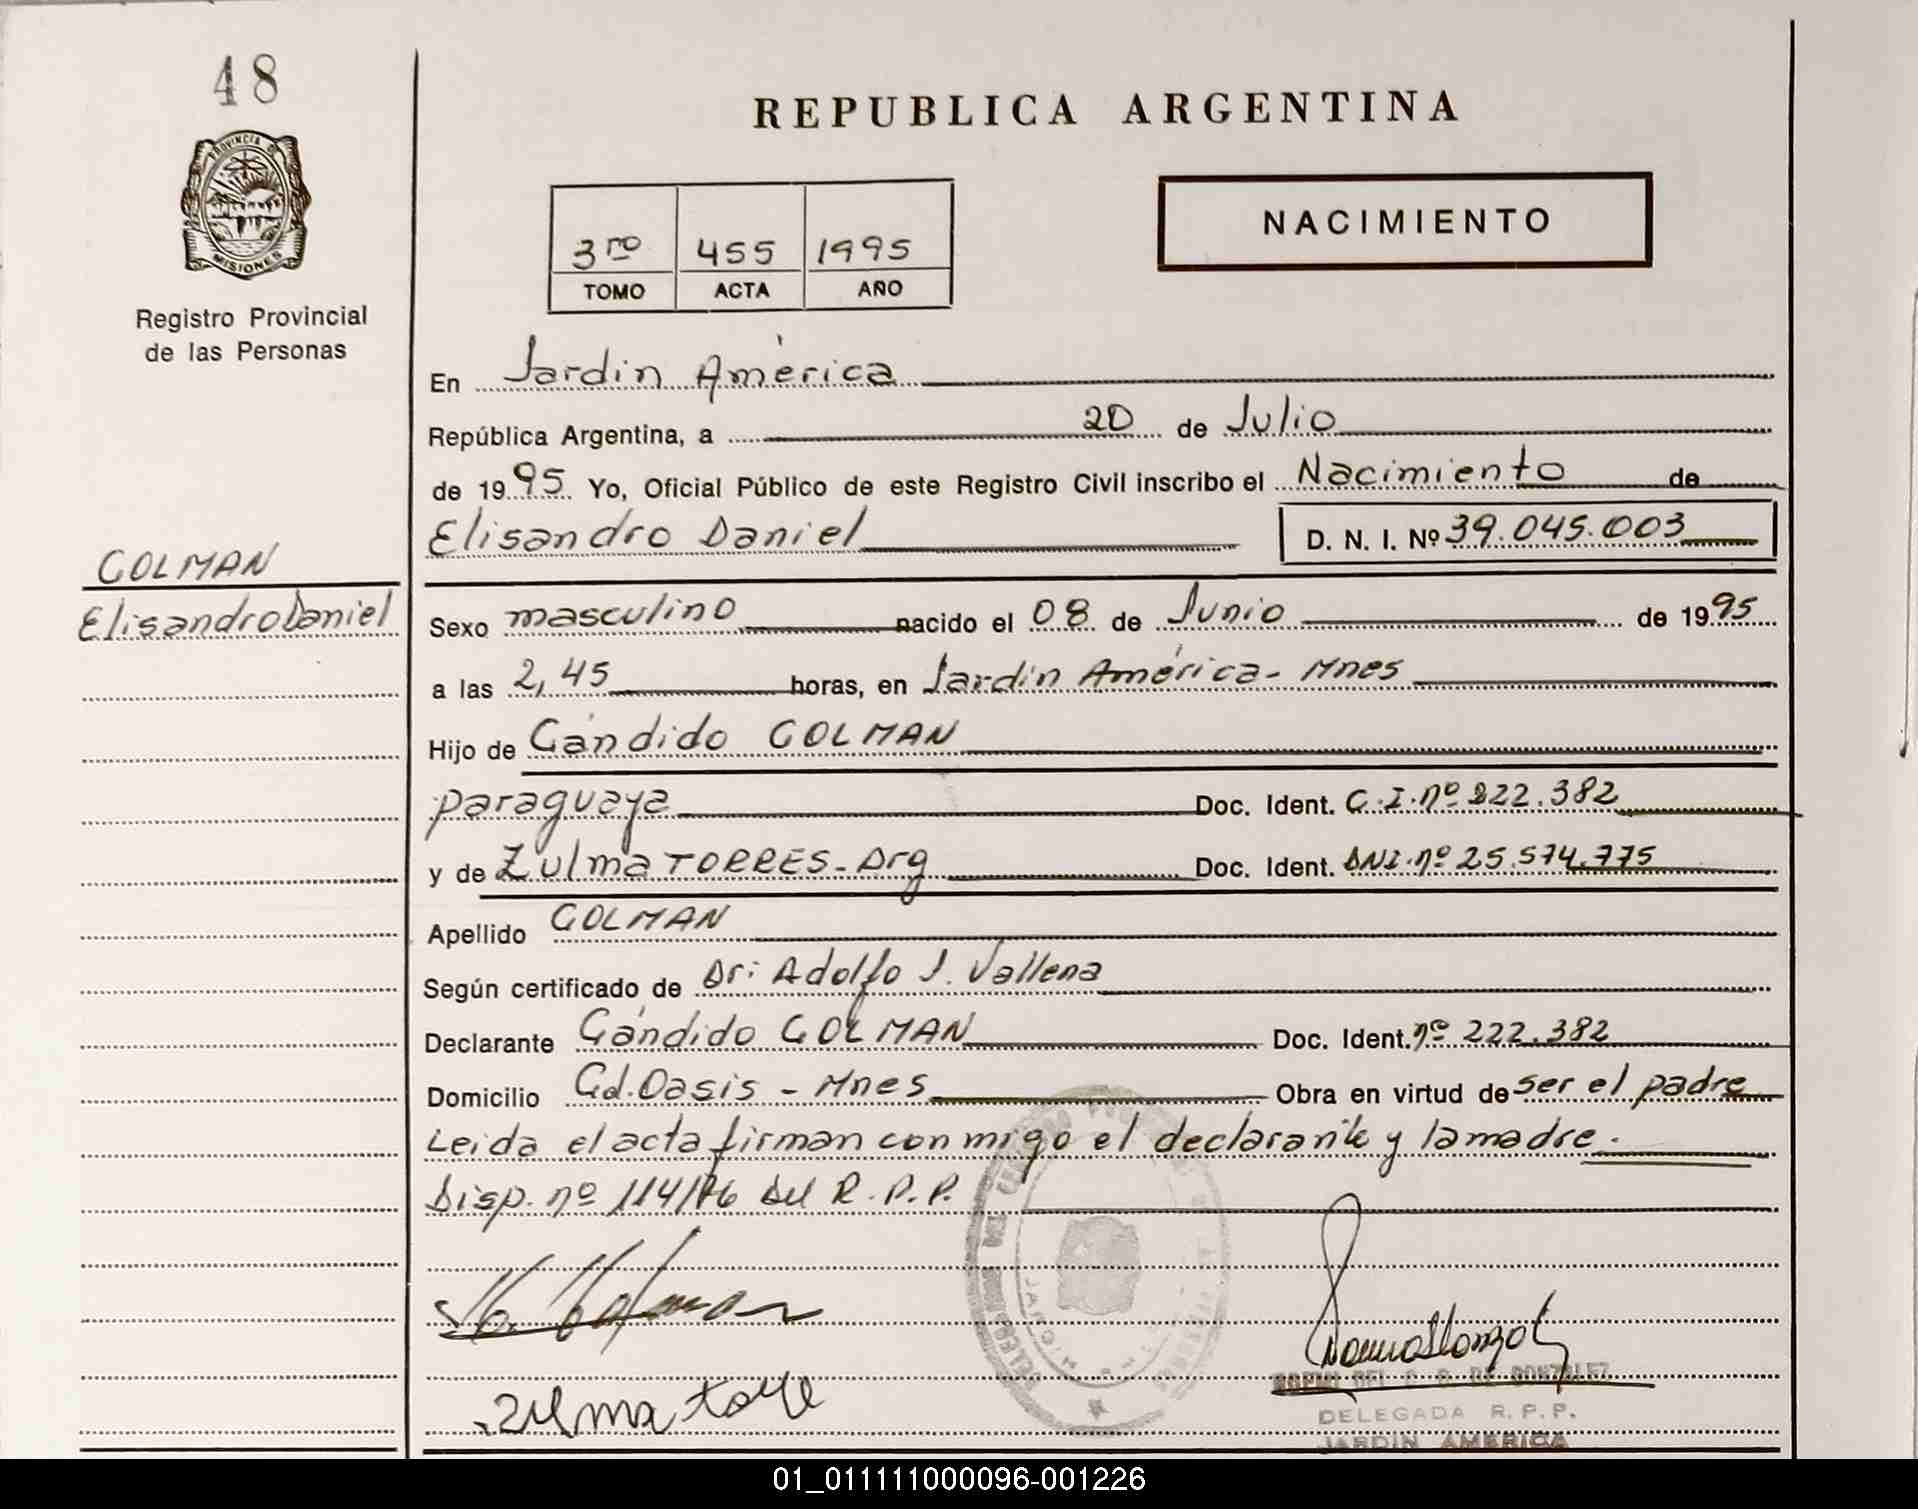 48
PROVINCIA DE
MISIONES
Registro Provincial
de las Personas
COLMAN
Elisandro Daniel
REPUBLICA ARGENTINA
3ro 455 1995
TOMO ACTA AÑO
NACIMIENTO
En Jardín América
República Argentina, a 20 de Julio
de 1995 Yo, Oficial Público de este Registro Civil inscribo el Nacimiento de
Elisandro Daniel D. N. I. Nº 39.045.003
Sexo masculino nacido el 08 de Junio de 1995
a las 2,45 horas, en Jardín América - Mnes
Hijo de Cándido COLMAN
paraguaya Doc. Ident. C.I. nº 222.382
y de Zulma TORRES - Arg Doc. Ident. DNI. nº 25.574.775
Apellido COLMAN
Según certificado de Dr: Adolfo J. Vallena
Declarante Cándido COLMAN Doc. Ident. nº 222.382
Domicilio Cd. Oasis - Mnes Obra en virtud de ser el padre
Leida el acta firman conmigo el declarante y la madre.
Disp. nº 114/76 del R.P.P.
Zulma Torre
DE GONZALEZ
DELEGADA R.P.P.
JARDIN AMERICA
01_011111000096-001226